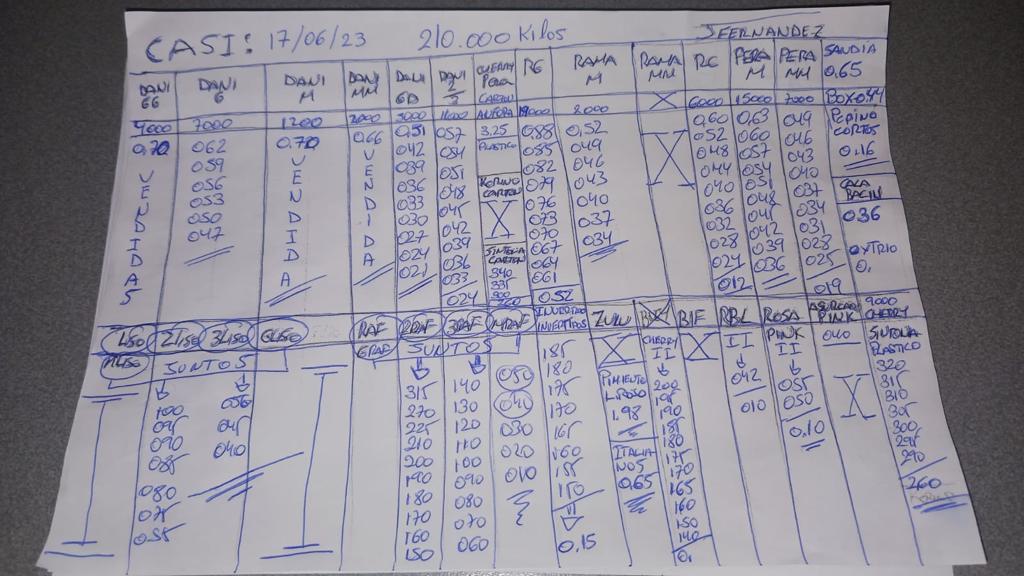 CASI: 17/06/23 210.000 Kilos JFERNANDEZ
DANI GG DANI G DANI M DANI MM DANI GD DANI 2/3 CHERRY PERA CARTON RG RAMA M RAMA MM RG PERA M PERA MM SANDIA 0,65
4000 7000 1200 2000 3000 ANFORA 2000 X 6000 15000 7000 BOX 0.44
0,70 062 0,70 0,66 0,51 057 3.25 088 0,52 0,60 0,63 049 PEPINO CORTOS
059 042 054 PLASTICO 085 049 052 060 046 0.16
056 039 051 082 046 048 057 043
053 036 048 079 043 044 054 040 CALA BACIN
050 033 045 X 076 040 040 051 037 036
047 030 042 073 037 036 048 034
027 039 070 034 032 045 031
024 036 067 028 039 028
021 033 340 064 024 036 025 0,
024 335 061 012 019
0.52
VENDIDAS VENDIDA VENDIDA
1LISO 2LISO 3LISO GLISO RAF 2RAF 3RAF 4RAF X BIF RBL ROSA PINK 9000 CHERRY
JUNTOS GRAF JUNTOS X CHERRY II X II PINK II 040 X PLASTICO
100 050 315 140 050 185 200 042 055 320
095 045 270 130 040 180 PIMIENTO 195 010 050 315
090 040 225 120 030 175 190 0.10 310
085 210 110 020 170 1.98 185 305
080 200 100 010 165 ITALIA NOS 180 300
075 190 090 160 0,65 175 295
055 180 080 155 170 290
170 070 150 165 260
160 060 0,15 160
150 150
140
0,